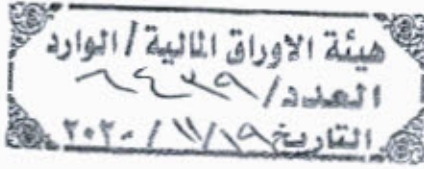 هيئة الاوراق المالية / الوارد
العدد / ٨٤٣٩
التاريخ ١٩ / ١١ / ٢٠٢٠